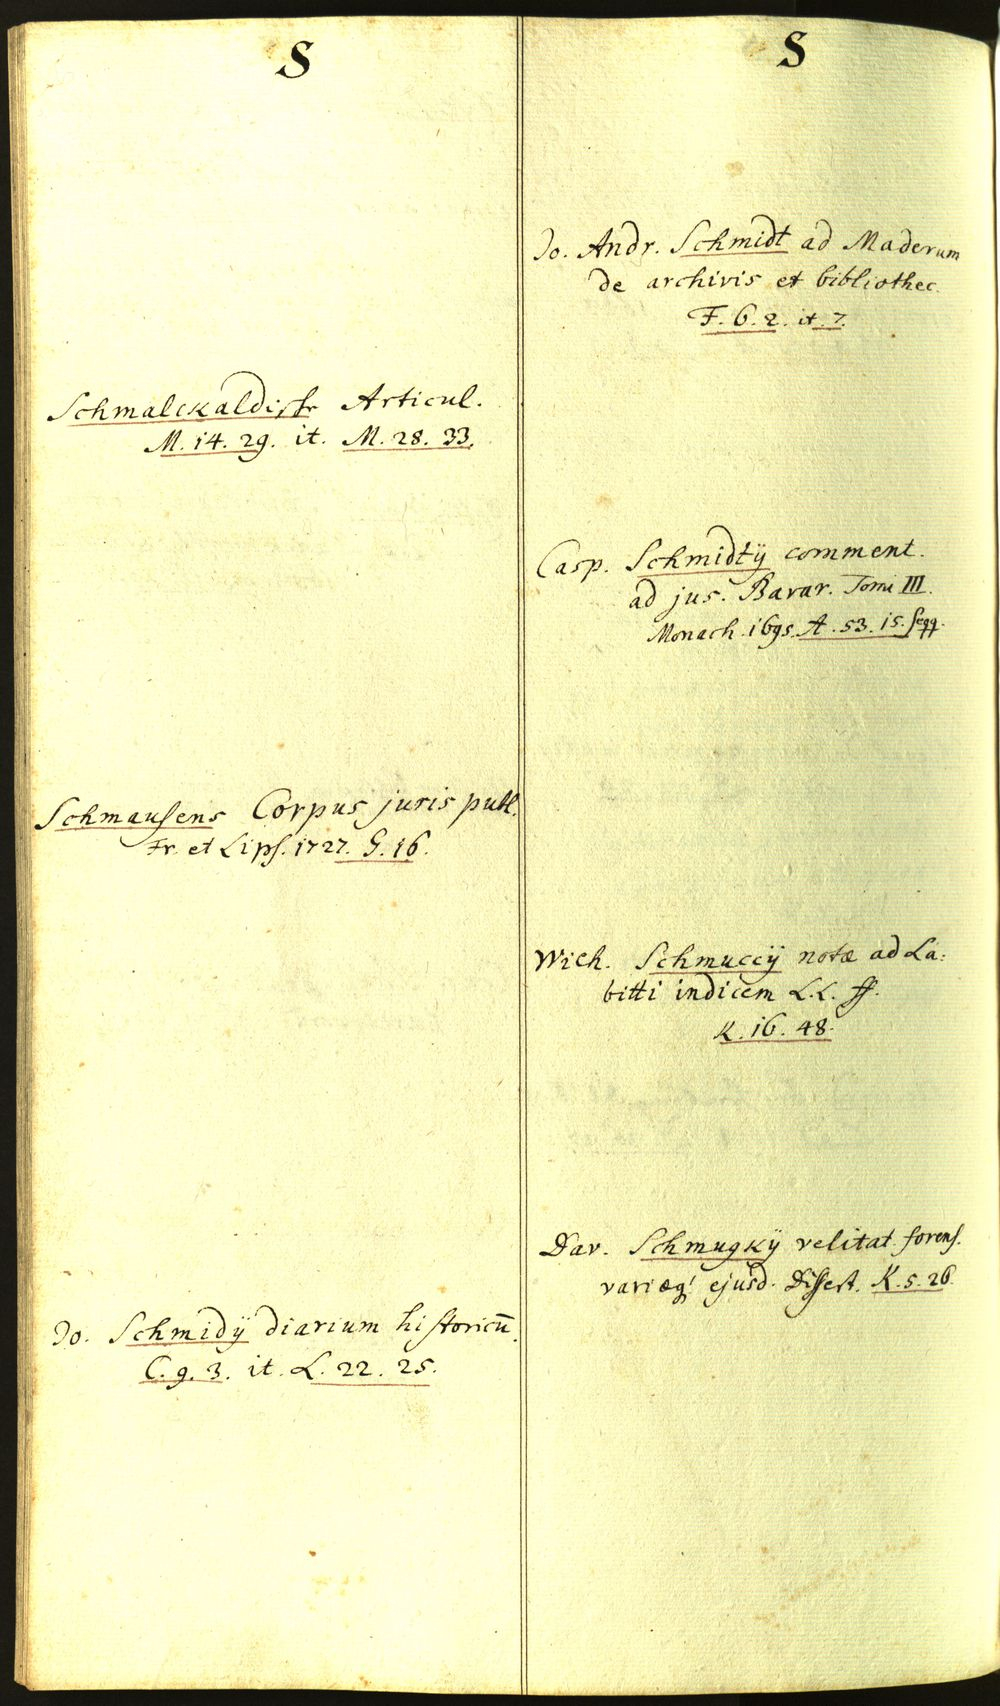 S
Schmalckaldische Articul.
M. 14. 29. it. M. 28. 33.
Schmausens Corpus juris publ.
Fr. et Lips. 1727. G. 16.
Jo. Schmidij diarium historicū.
C. 9. 3. it. L. 22. 25.
S
Jo. Andr. Schmidt ad Maderum
de archivis et bibliothec.
F. 6. 2. it. 7.
Casp. Schmidtij comment.
ad jus. Bavar. Tomi III.
Monach. 1695. A. 53. 15. seqq.
Wich. Schmuccij notæ ad La:
bitti indicem L.L. ff.
K. 16. 48.
Dav. Schmugkij velitat. forens.
variæq' ejusd. Dissert. K. 5. 26.